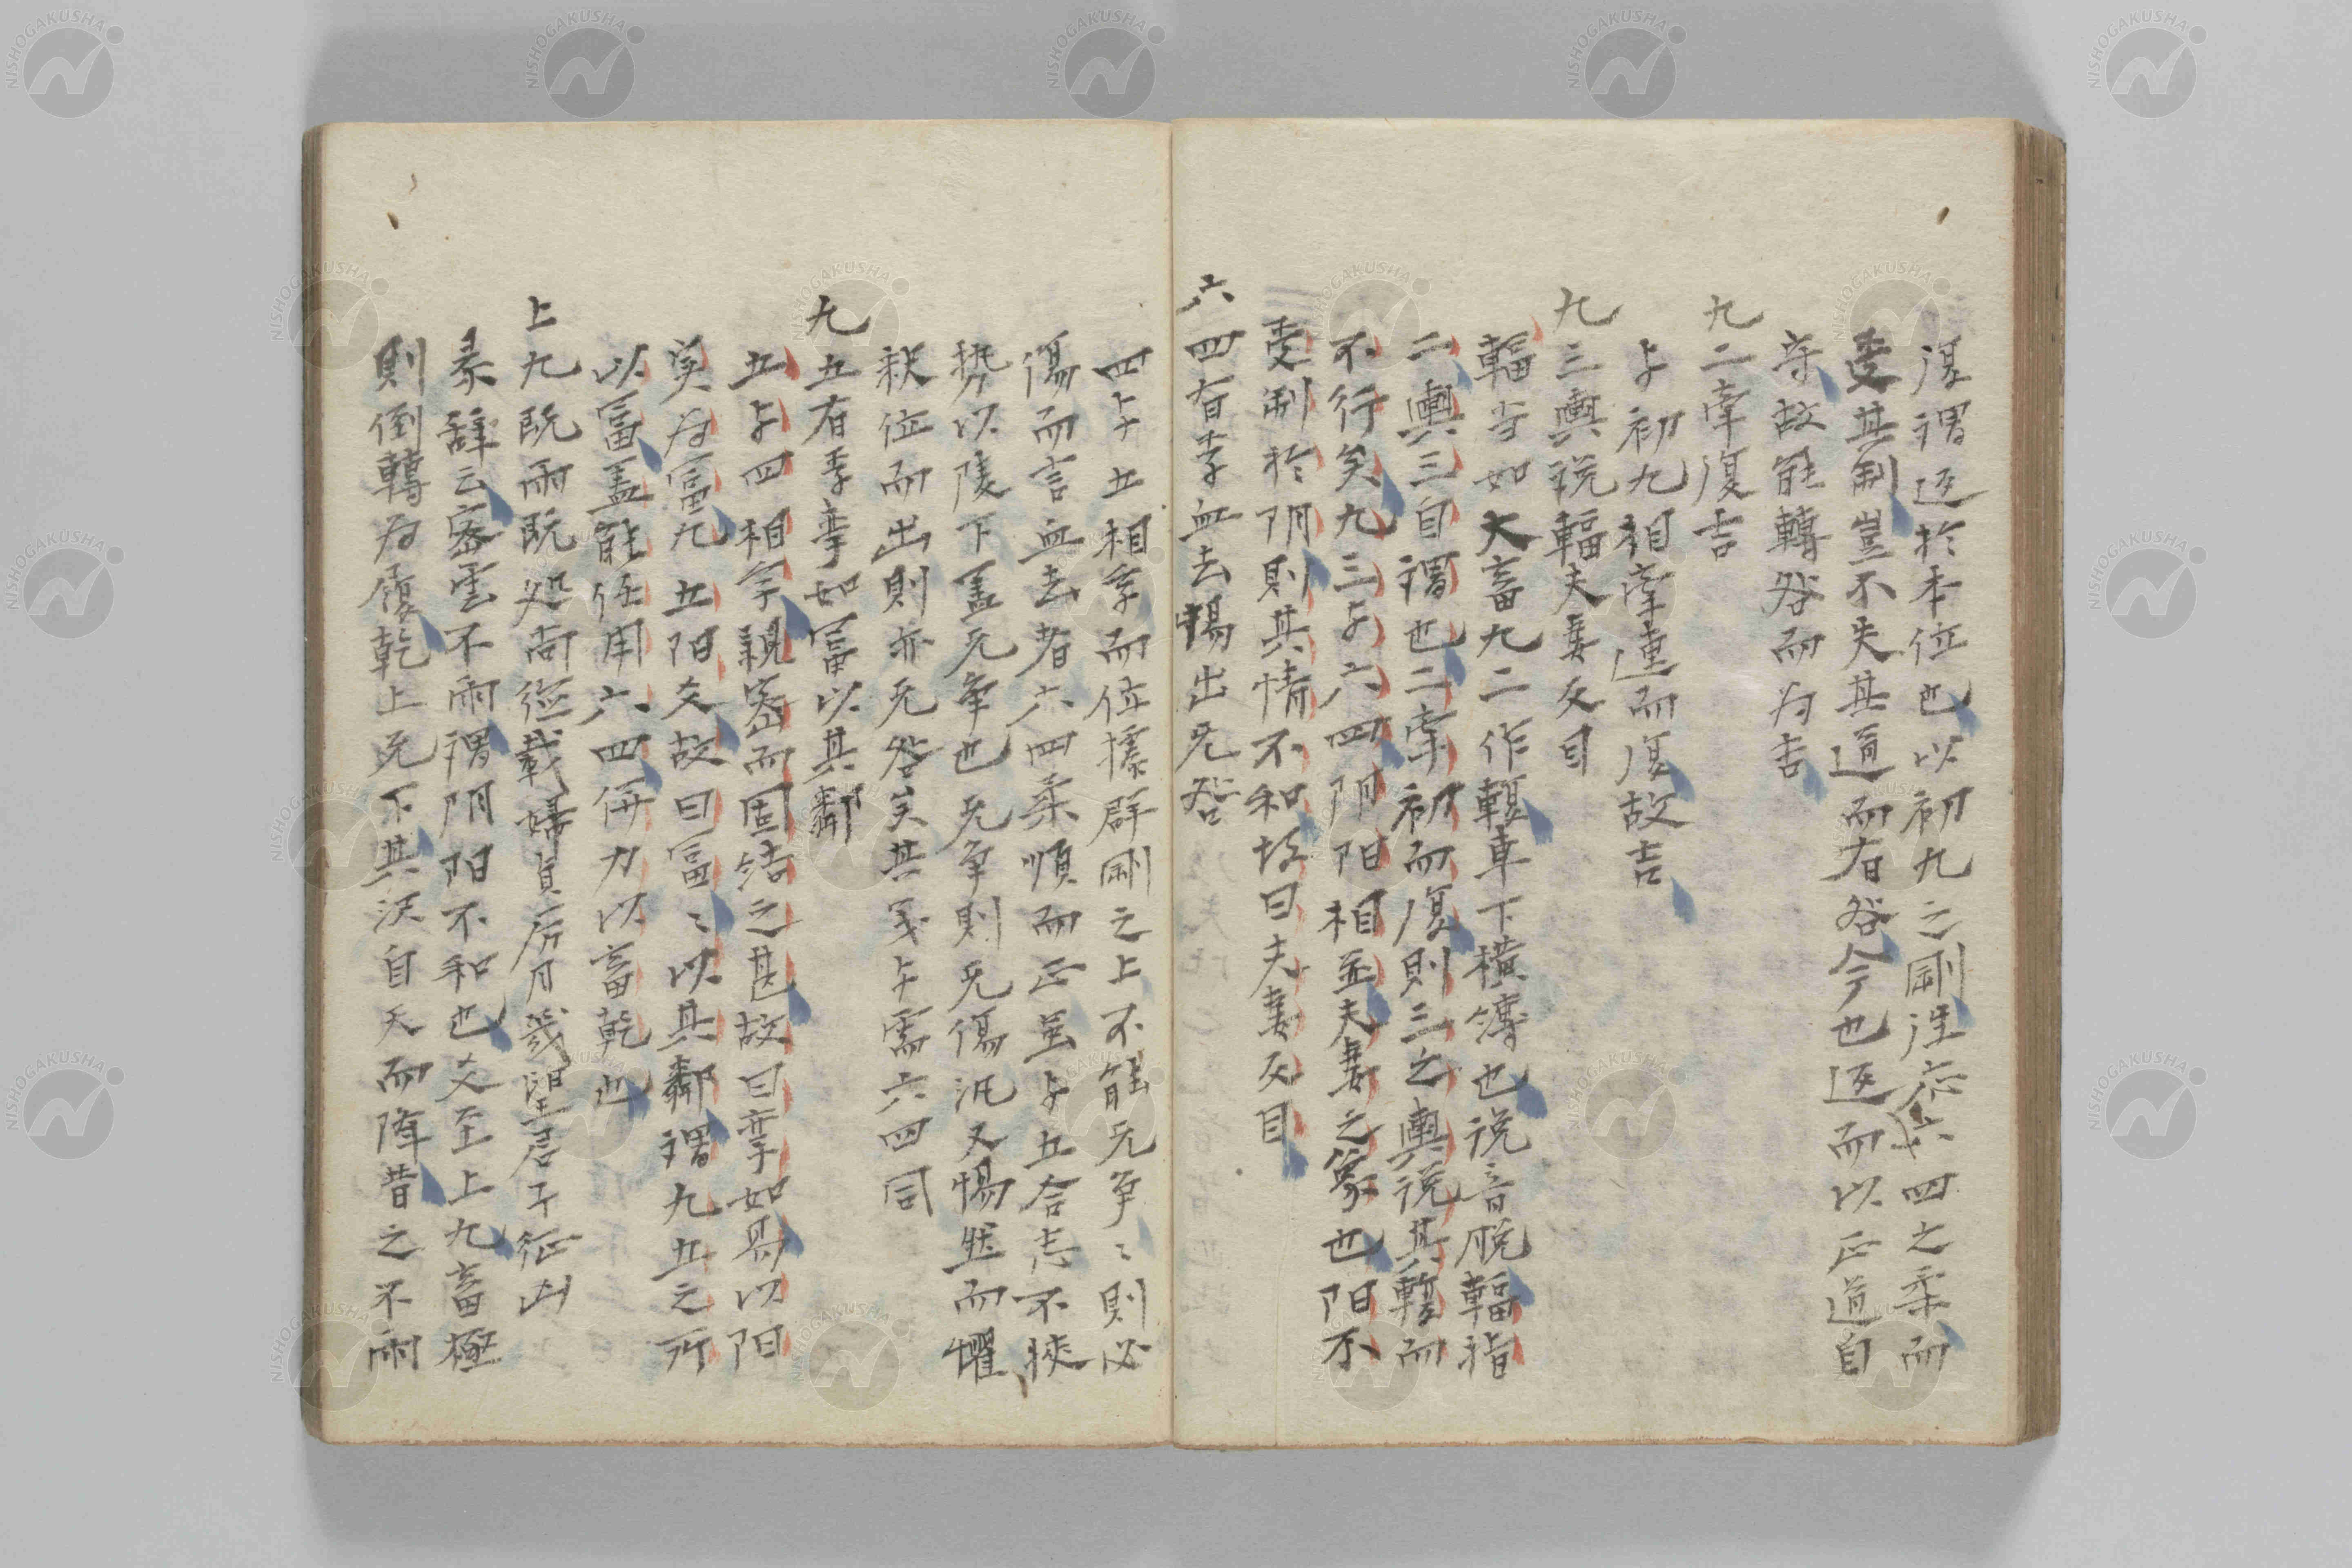 復謂返於本位也以初九之剛徃应六四之柔而
受其制豈不失其道而有咎今也返而以正道自
守故能轉咎而为吉
九二牽復吉
与初九相牽連而復故吉
九三輿説輻夫妻反目
輻当如大畜九二作輹車下橫縛也説音脱輻指
二輿三自謂也二牽初而復則三之輿説其輹而
不行矣九三与六四阴阳相並夫妻之象也阳不
受制於阴則其情不和故曰夫妻反目
六四有孚血去惕出无咎
四与五相孚而位據群剛之上不能无争〻則必
傷而言血去者六四柔順而正虽与五合志不挾
势以陵下盖无争也无争則无傷况又惕然而懼
釈位而出則亦无咎矣其义与需六四同
九五有孚攣如冨以其鄰
五与四相孚親密而固结之甚故曰攣如易以阳
実为冨九五阳爻故曰冨〻以其鄰謂九五之所
以冨盖能任用六四併力以畜乾也
上九既雨既処尚徳載婦貞厉月幾望君子征凶
彖辞云密雲不雨謂阴阳不和也爻至上九畜極
則倒轉为履乾上兑下其沢自天而降昔之不雨
NISHOGAKUSHA